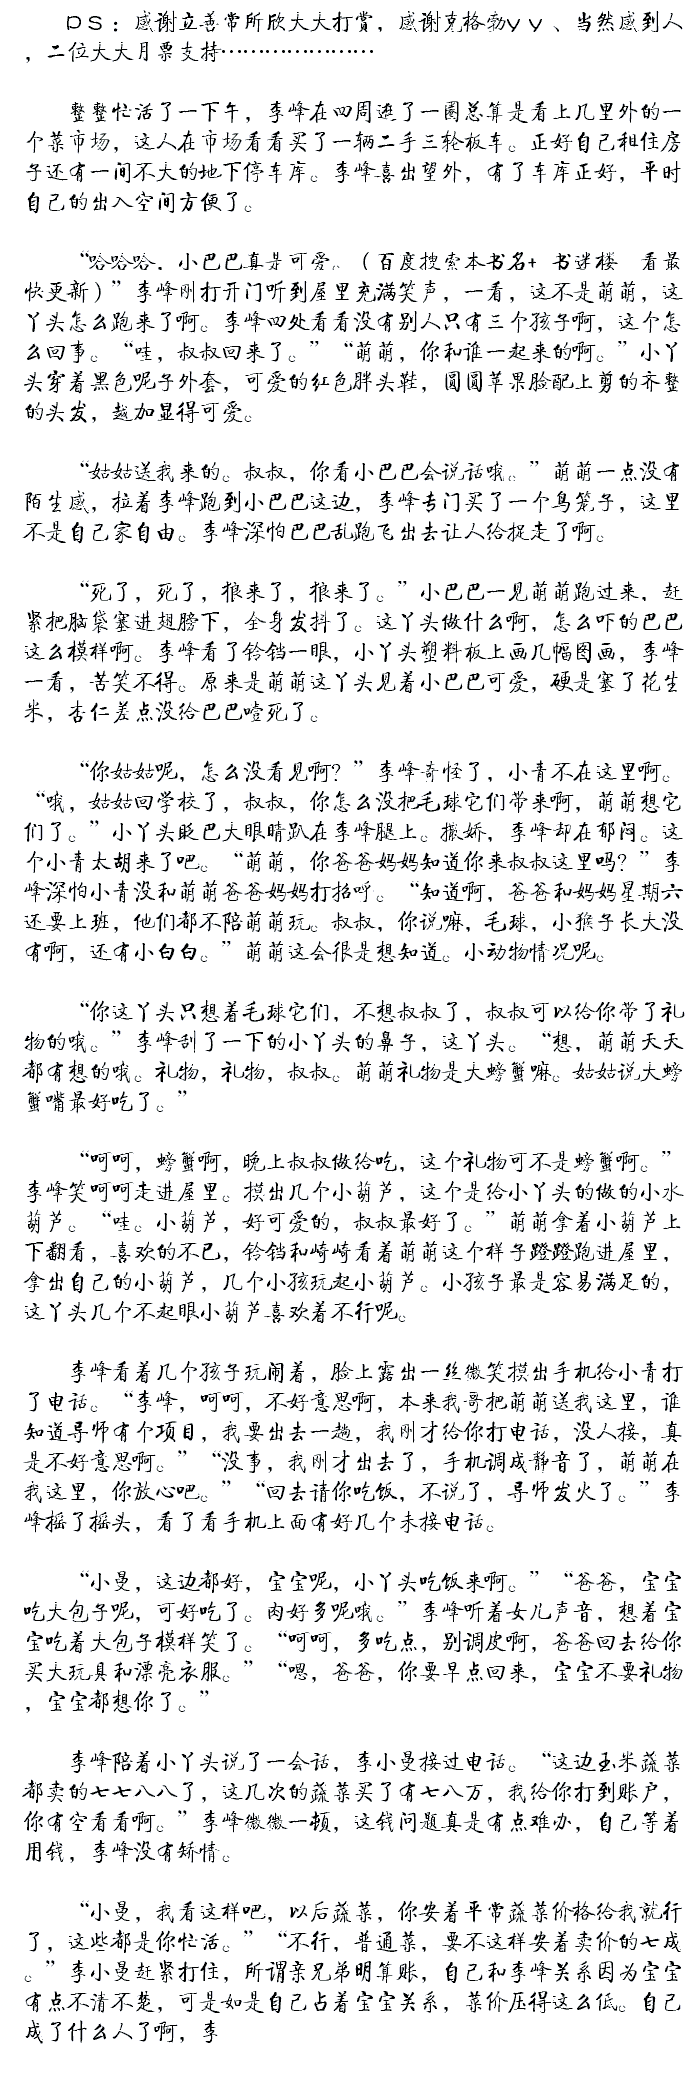 PS：感谢立善常所欣大大打赏，感谢克格勃yy、当然感到人
，二位大大月票支持…………………
整整忙活了一下午，李峰在四周逛了一圈总算是看上几里外的一
个菜市场，这人在市场看看买了一辆二手三轮板车。正好自己租住房
子还有一间不大的地下停车库。李峰喜出望外，有了车库正好，平时
自己的出入空间方便了。
“哈哈哈，小巴巴真是可爱。（百度搜索本书名+ 书迷楼 看最
快更新）”李峰刚打开门听到屋里充满笑声，一看，这不是萌萌，这
丫头怎么跑来了啊。李峰四处看看没有别人只有三个孩子啊，这个怎
么回事。“哇，叔叔回来了。”“萌萌，你和谁一起来的啊。”小丫
头穿着黑色呢子外套，可爱的红色胖头鞋，圆圆苹果脸配上剪的齐整
的头发，越加显得可爱。
“姑姑送我来的。叔叔，你看小巴巴会说话哦。”萌萌一点没有
陌生感，拉着李峰跑到小巴巴这边，李峰专门买了一个鸟笼子，这里
不是自己家自由。李峰深怕巴巴乱跑飞出去让人给捉走了啊。
“死了，死了，狼来了，狼来了。”小巴巴一见萌萌跑过来，赶
紧把脑袋塞进翅膀下，全身发抖了。这丫头做什么啊，怎么吓的巴巴
这么模样啊。李峰看了铃铛一眼，小丫头塑料板上画几幅图画，李峰
一看，苦笑不得。原来是萌萌这丫头见着小巴巴可爱，硬是塞了花生
米，杏仁差点没给巴巴噎死了。
“你姑姑呢，怎么没看见啊？”李峰奇怪了，小青不在这里啊。
“哦，姑姑回学校了，叔叔，你怎么没把毛球它们带来啊，萌萌想它
们了。”小丫头眨巴大眼睛趴在李峰腿上。撒娇，李峰却在郁闷。这
个小青太胡来了吧。“萌萌，你爸爸妈妈知道你来叔叔这里吗？”李
峰深怕小青没和萌萌爸爸妈妈打招呼。“知道啊，爸爸和妈妈星期六
还要上班，他们都不陪萌萌玩。叔叔，你说嘛，毛球，小猴子长大没
有啊，还有小白白。”萌萌这会很是想知道。小动物情况呢。
“你这丫头只想着毛球它们，不想叔叔了，叔叔可以给你带了礼
物的哦。”李峰刮了一下的小丫头的鼻子，这丫头。“想，萌萌天天
都有想的哦。礼物，礼物，叔叔。萌萌礼物是大螃蟹嘛。姑姑说大螃
蟹嘴最好吃了。”
“呵呵，螃蟹啊，晚上叔叔做给吃，这个礼物可不是螃蟹啊。”
李峰笑呵呵走进屋里。摸出几个小葫芦，这个是给小丫头的做的小水
葫芦。“哇。小葫芦，好可爱的，叔叔最好了。”萌萌拿着小葫芦上
下翻看，喜欢的不已，铃铛和崎崎看着萌萌这个样子蹬蹬跑进屋里，
拿出自己的小葫芦，几个小孩玩起小葫芦。小孩子最是容易满足的，
这丫头几个不起眼小葫芦喜欢着不行呢。
李峰看着几个孩子玩闹着，脸上露出一丝微笑摸出手机给小青打
了电话。“李峰，呵呵，不好意思啊，本来我哥把萌萌送我这里，谁
知道导师有个项目，我要出去一趟，我刚才给你打电话，没人接，真
是不好意思啊。”“没事，我刚才出去了，手机调成静音了，萌萌在
我这里，你放心吧。”“回去请你吃饭，不说了，导师发火了。”李
峰摇了摇头，看了看手机上面有好几个未接电话。
“小曼，这边都好，宝宝呢，小丫头吃饭来啊。”“爸爸，宝宝
吃大包子呢，可好吃了。肉好多呢哦。”李峰听着女儿声音，想着宝
宝吃着大包子模样笑了。“呵呵，多吃点，别调皮啊，爸爸回去给你
买大玩具和漂亮衣服。”“嗯，爸爸，你要早点回来，宝宝不要礼物
，宝宝都想你了。”
李峰陪着小丫头说了一会话，李小曼接过电话。“这边玉米蔬菜
都卖的七七八八了，这几次的蔬菜买了有七八万，我给你打到账户，
你有空看看啊。”李峰微微一顿，这钱问题真是有点难办，自己等着
用钱，李峰没有矫情。
“小曼，我看这样吧，以后蔬菜，你安着平常蔬菜价格给我就行
了，这些都是你忙活。”“不行，普通菜，要不这样安着卖价的七成
。”李小曼赶紧打住，所谓亲兄弟明算账，自己和李峰关系因为宝宝
有点不清不楚，可是如是自己占着宝宝关系，菜价压得这么低。自己
成了什么人了啊，李